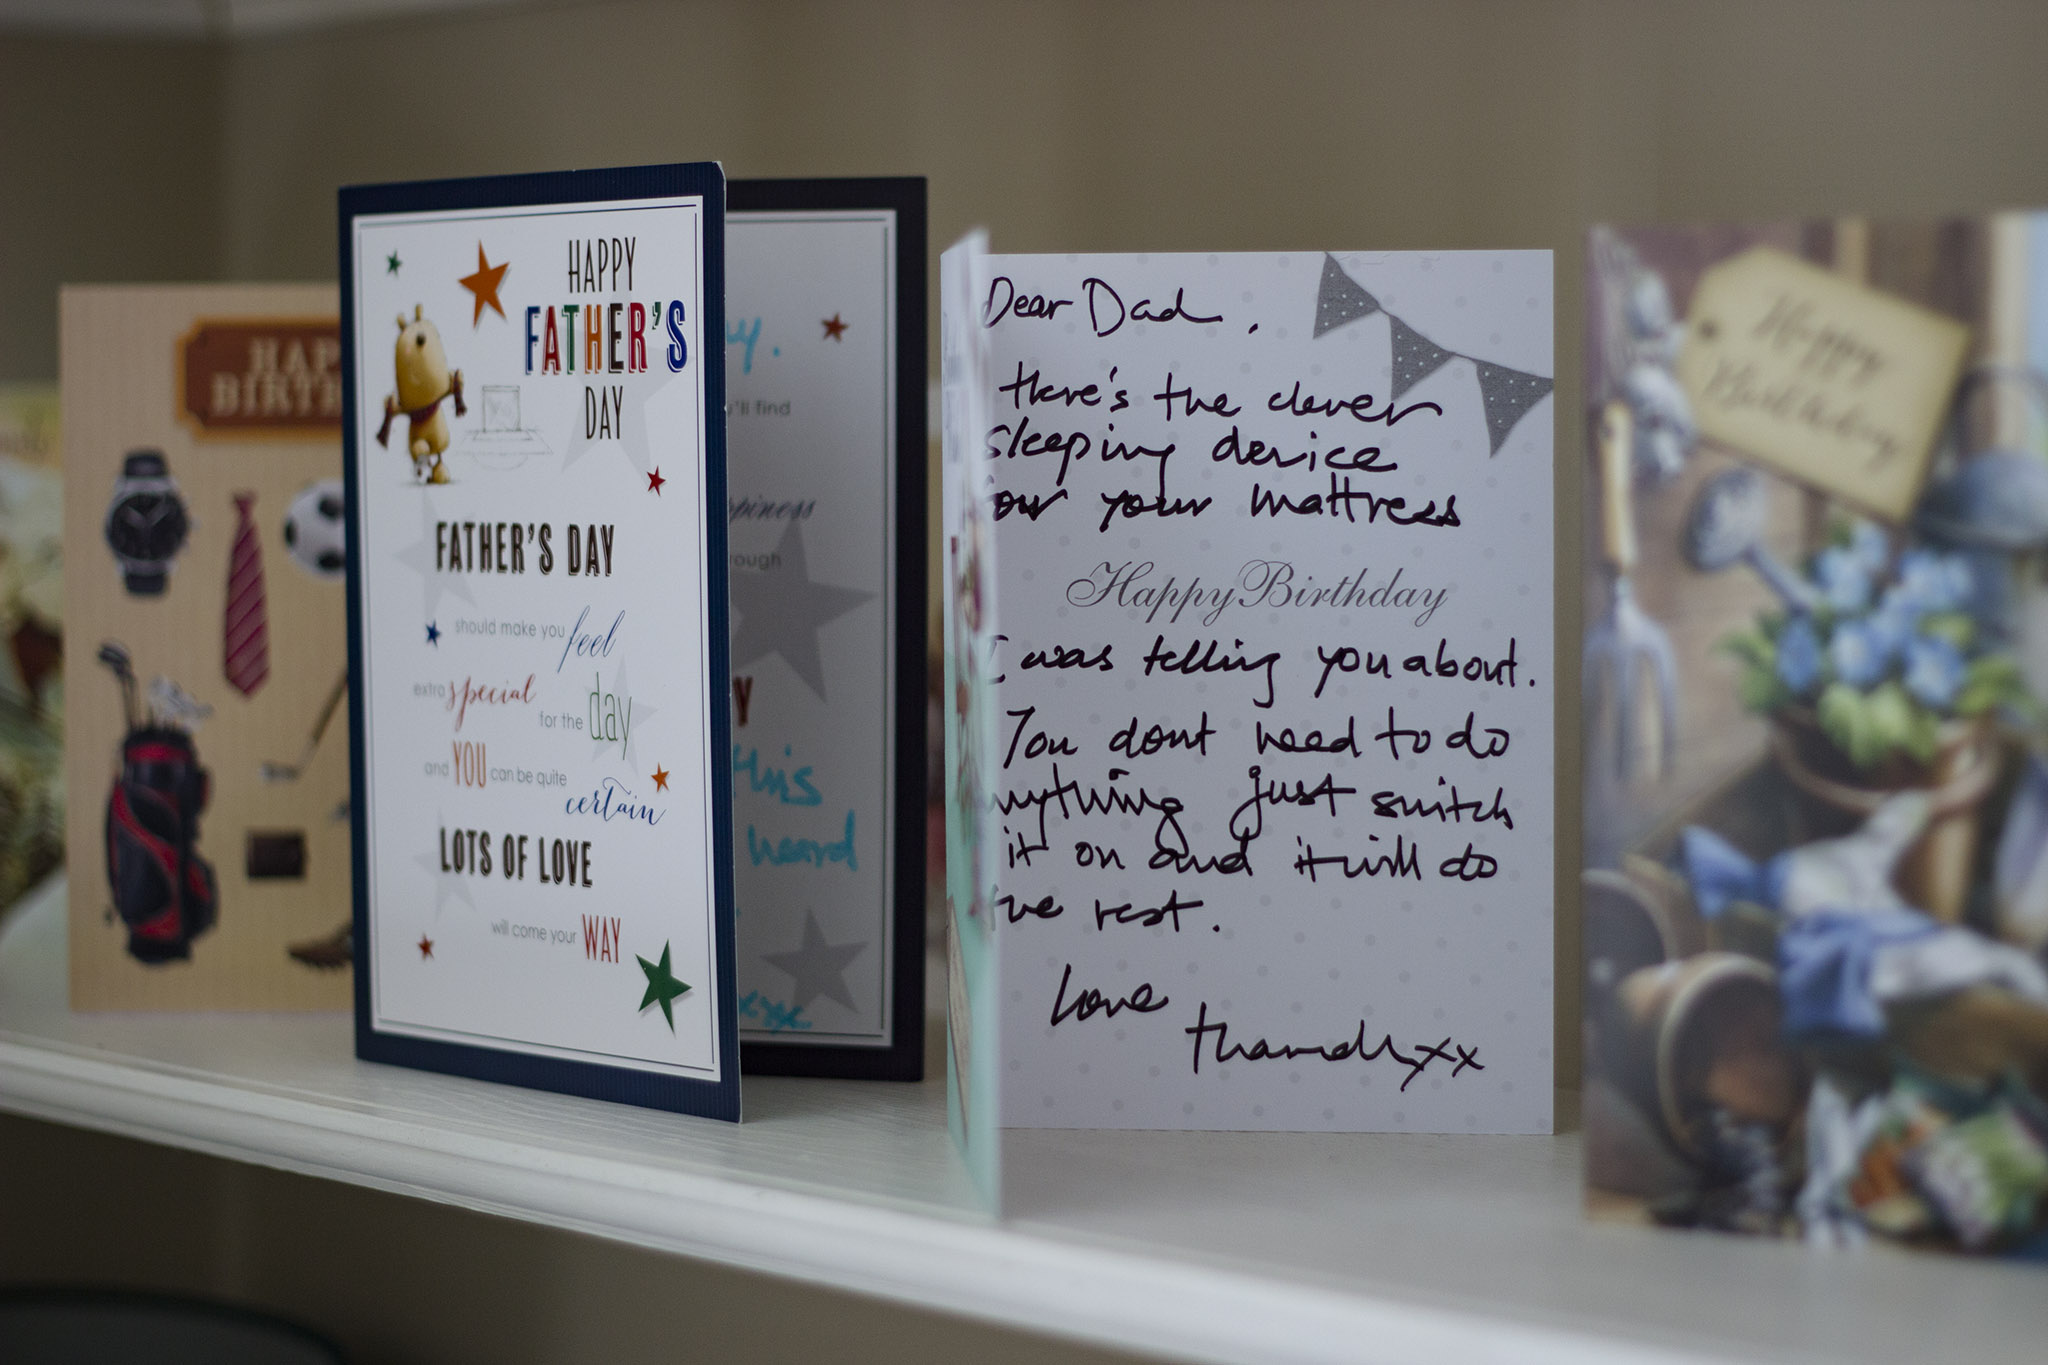 HAPPY
FATHER'S
DAY
FATHER'S DAY
should make you feel
extra special for the day
and YOU can be quite certain
LOTS OF LOVE
will come your WAY
this
heard
Dear Dad,
Here's the clever
sleeping device
for your mattress
Happy Birthday
I was telling you about.
You dont need to do
anything just switch
it on and it will do
the rest.
Love
xx
Happy
Birthday